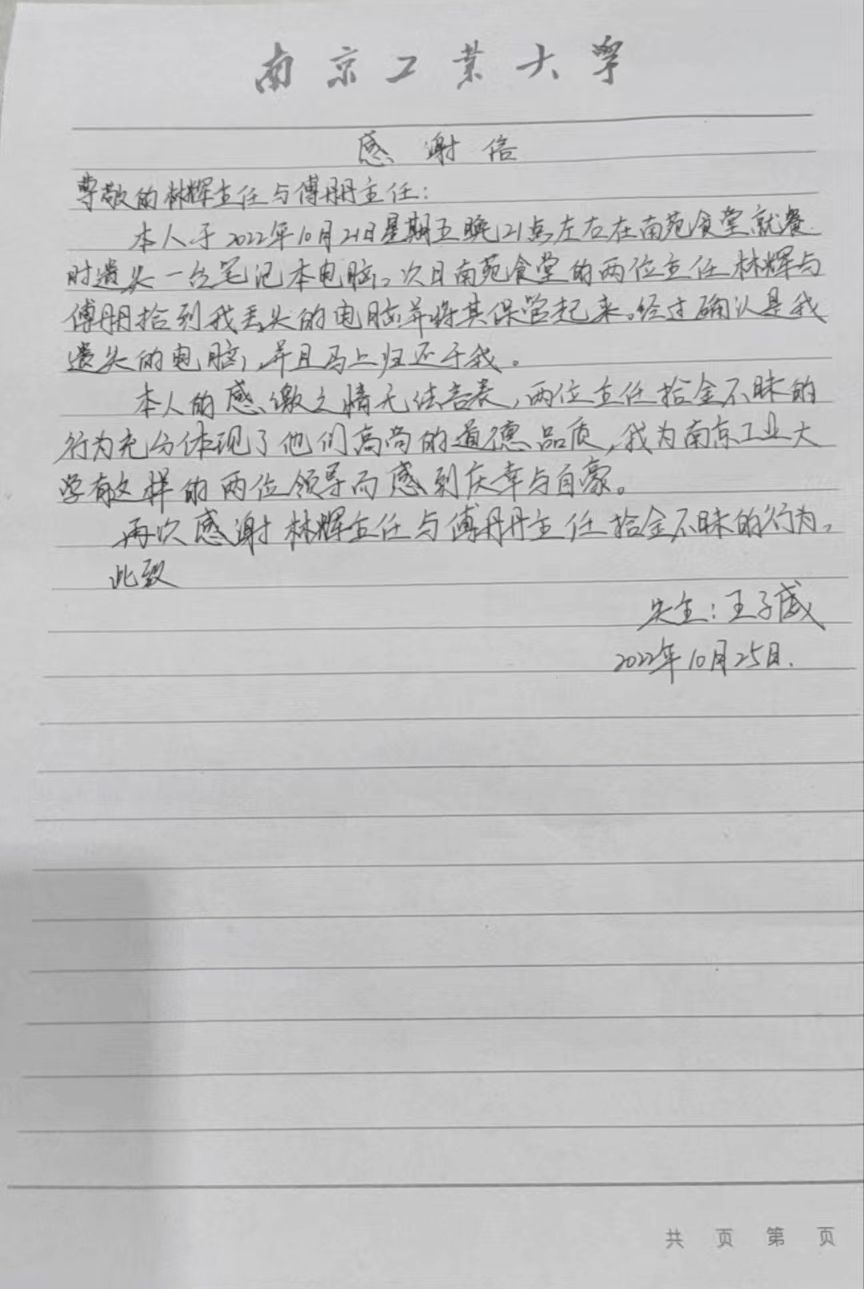 南京工业大学
感谢信
尊敬的林辉主任与傅朋主任：
本人于2022年10月21日星期五晚21点左右在南苑食堂就餐
时遗失一台笔记本电脑。次日南苑食堂的两位主任林辉与
傅朋拾到我丢失的电脑并将其保管起来。经过确认是我
遗失的电脑，并且马上归还于我。
本人的感激之情无法言表，两位主任拾金不昧的
行为充分体现了他们高尚的道德品质，我为南京工业大
学有这样的两位领导而感到庆幸与自豪。
再次感谢林辉主任与傅主任拾金不昧的行为。
此致
失主：王子威
2022年10月25日.
共 页 第 页